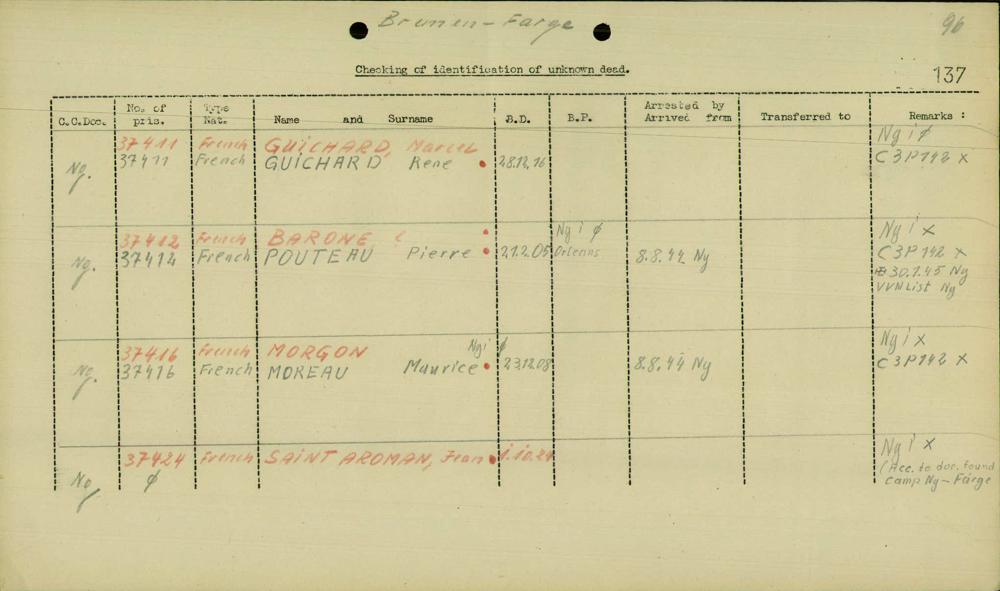 Brunen-Farge
96
Checking of identification of unknown dead.
137
C.C.Doc. No. of pris. Type Nat. Name and Surname B.D. B.P. Arrested by Arrived from Transferred to Remarks :
37411 French GUICHARD, Marcel Ng i ø
Ng. 37411 French GUICHARD Rene 28.12.16 C3P142 x
37412 French BARONE, Ng i ø Ng i x
Ng. 37412 French POUTEAU Pierre 21.2.05 Orleans 8.8.44 Ng C3P142 x
30.1.45 Ng
VVN List Ng
37416 French MORGON Ng i ø Ng i x
Ng. 37416 French MOREAU Maurice 23.12.08 8.8.44 Ng C3P142 x
37424 French SAINT AROMAN, Jean 1.10.24 Ng i x
Ng ø (Acc. to doc. found
camp Ng-Farge